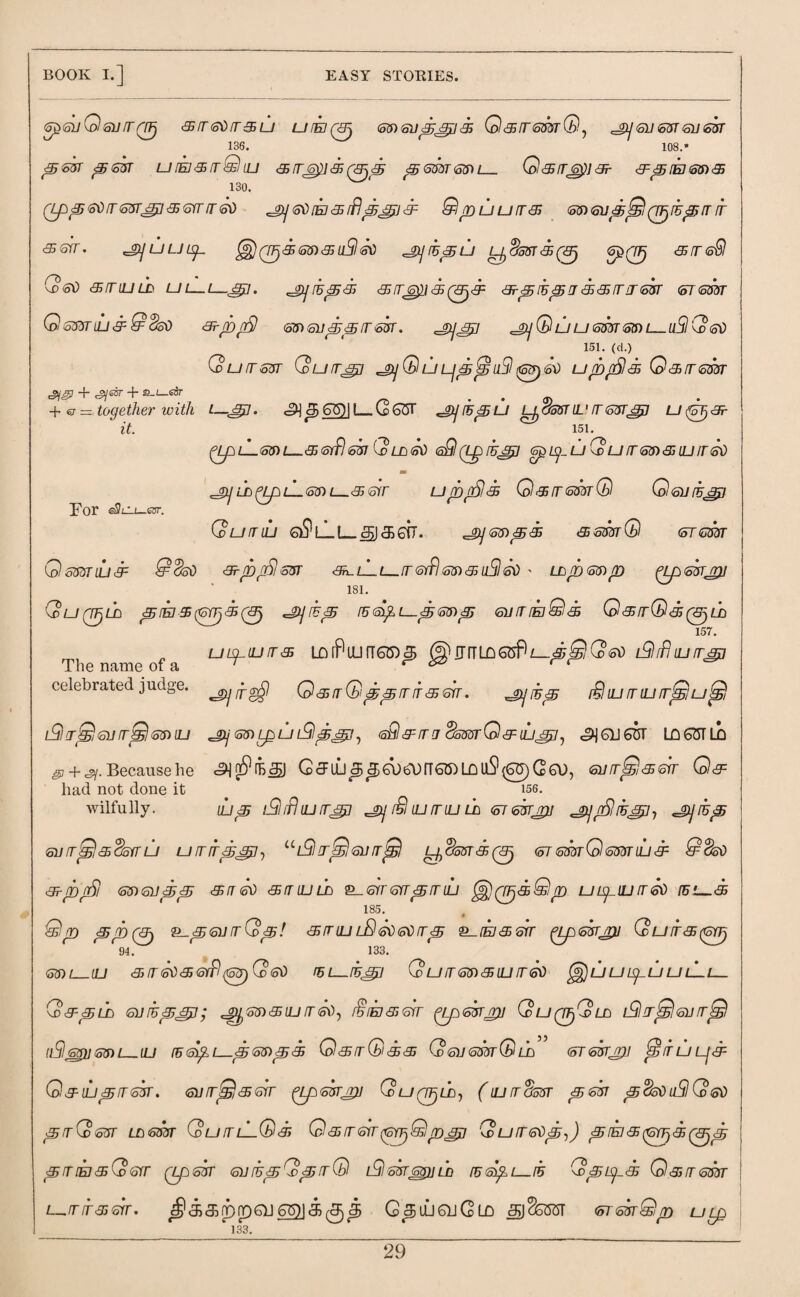 BOOK I.] EASY STORIES.
ஒவவொரு காலாகப பஙகு வைததுக கொணடு, அவனவன
136. 108.*
தன தன பஙகாகிய காலுககுத தணடை கொலுசு சதஙகை
130.
முதலானதுகளால அலஙகரிததுச சிறபபாக வைததிருநதார
கள. அபபடி இருககையில அநதப பூனைககு ஒரு காலி
லே காயம படடது. அநதக காலுககுச சுதநதரககாரன எண
ணெயச சீலை சுறறி வைததான. அது அடுபபணடையிலே
151. (d.)
போன போது அடுபபுததீயினால பறறிக கொண
அது + அன + உடன
+ ஏ = together with
it.
டது. அதனுடனே அநதப பூனையானது பஞசு
151.
மூடடைகளின மேல விழுநது ஒடிப போகையால
அமமூடடைகள பறறிக கொணடு வெநது
For விடடன.
போய விடடதுகள. அதைக கணடு எண
ணெயச சீலை சுறறின கூடடாளிகையில ' மறறை மூனறு
181.
பேரும தஙகளுககு அநத நஷடததை வாஙகிக கொடுககும
157.
படியாக மரியாதை இராமனிடததிலே பிரியாது
The name of a
celebrated judge.
அரஜி கொடுததாரகள. அநத நியாயாதிபதி
பிரதிவாதியை அழைபபிதது, விசாரணைசெயது, அவன மனம
து + அ. Because he
had not done it
wilfully.
அறிநது செயததலலாமையினாலே, வாதிகள செ
156.
யத பிரியாது அநியாயம எனறு அறிநது, அநத
வாதிகளைப பாரதது, “பிரதிவாதி பூனைககு எணணெயச சீலை
சுறறி வைதத கால காயம உளளதாய இருககிற படியால நடக
185.
கிற தறகு உதவாதே! காயமிலலாத உஙகள மூனறு போகளு
94. 133.
டைய காலகளினாலே நடநது போகையால இபபடிப படட
சேதம வநதது; ஆகையால, நீஙகள மூனறு பேருமே பிரதிவாதி
யினுடைய நஷடததைக கொடுகக வேணடும” எனறு தீரபபுச
செயதான. வாதிகள மூனறு பேரும, (யானை தன தலையிலே
தானே மண போடடுக கொளளுகிறது போலத,) தஙகளுககுத
தாஙகளே முன வநததோடு பினனும நஷடந தேடிக கொண
டாரகள. திககறறவனுககுத தெயவமே துணை எனகிற பழ
133.
29